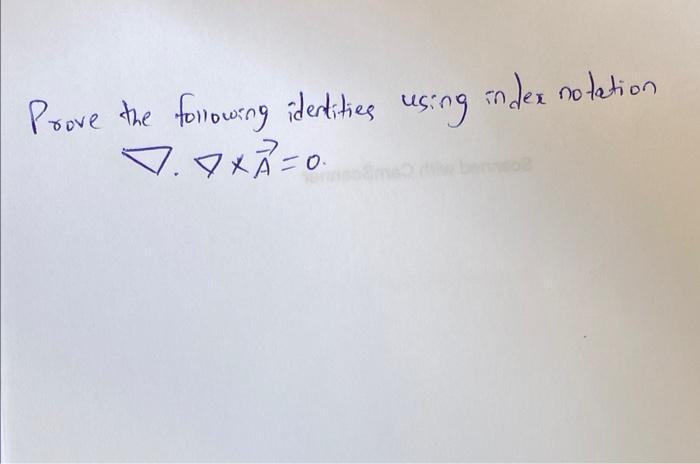 Prove the following identities using index notation
∇. ∇ × A⃗ = 0.
Scanned with CamScanner